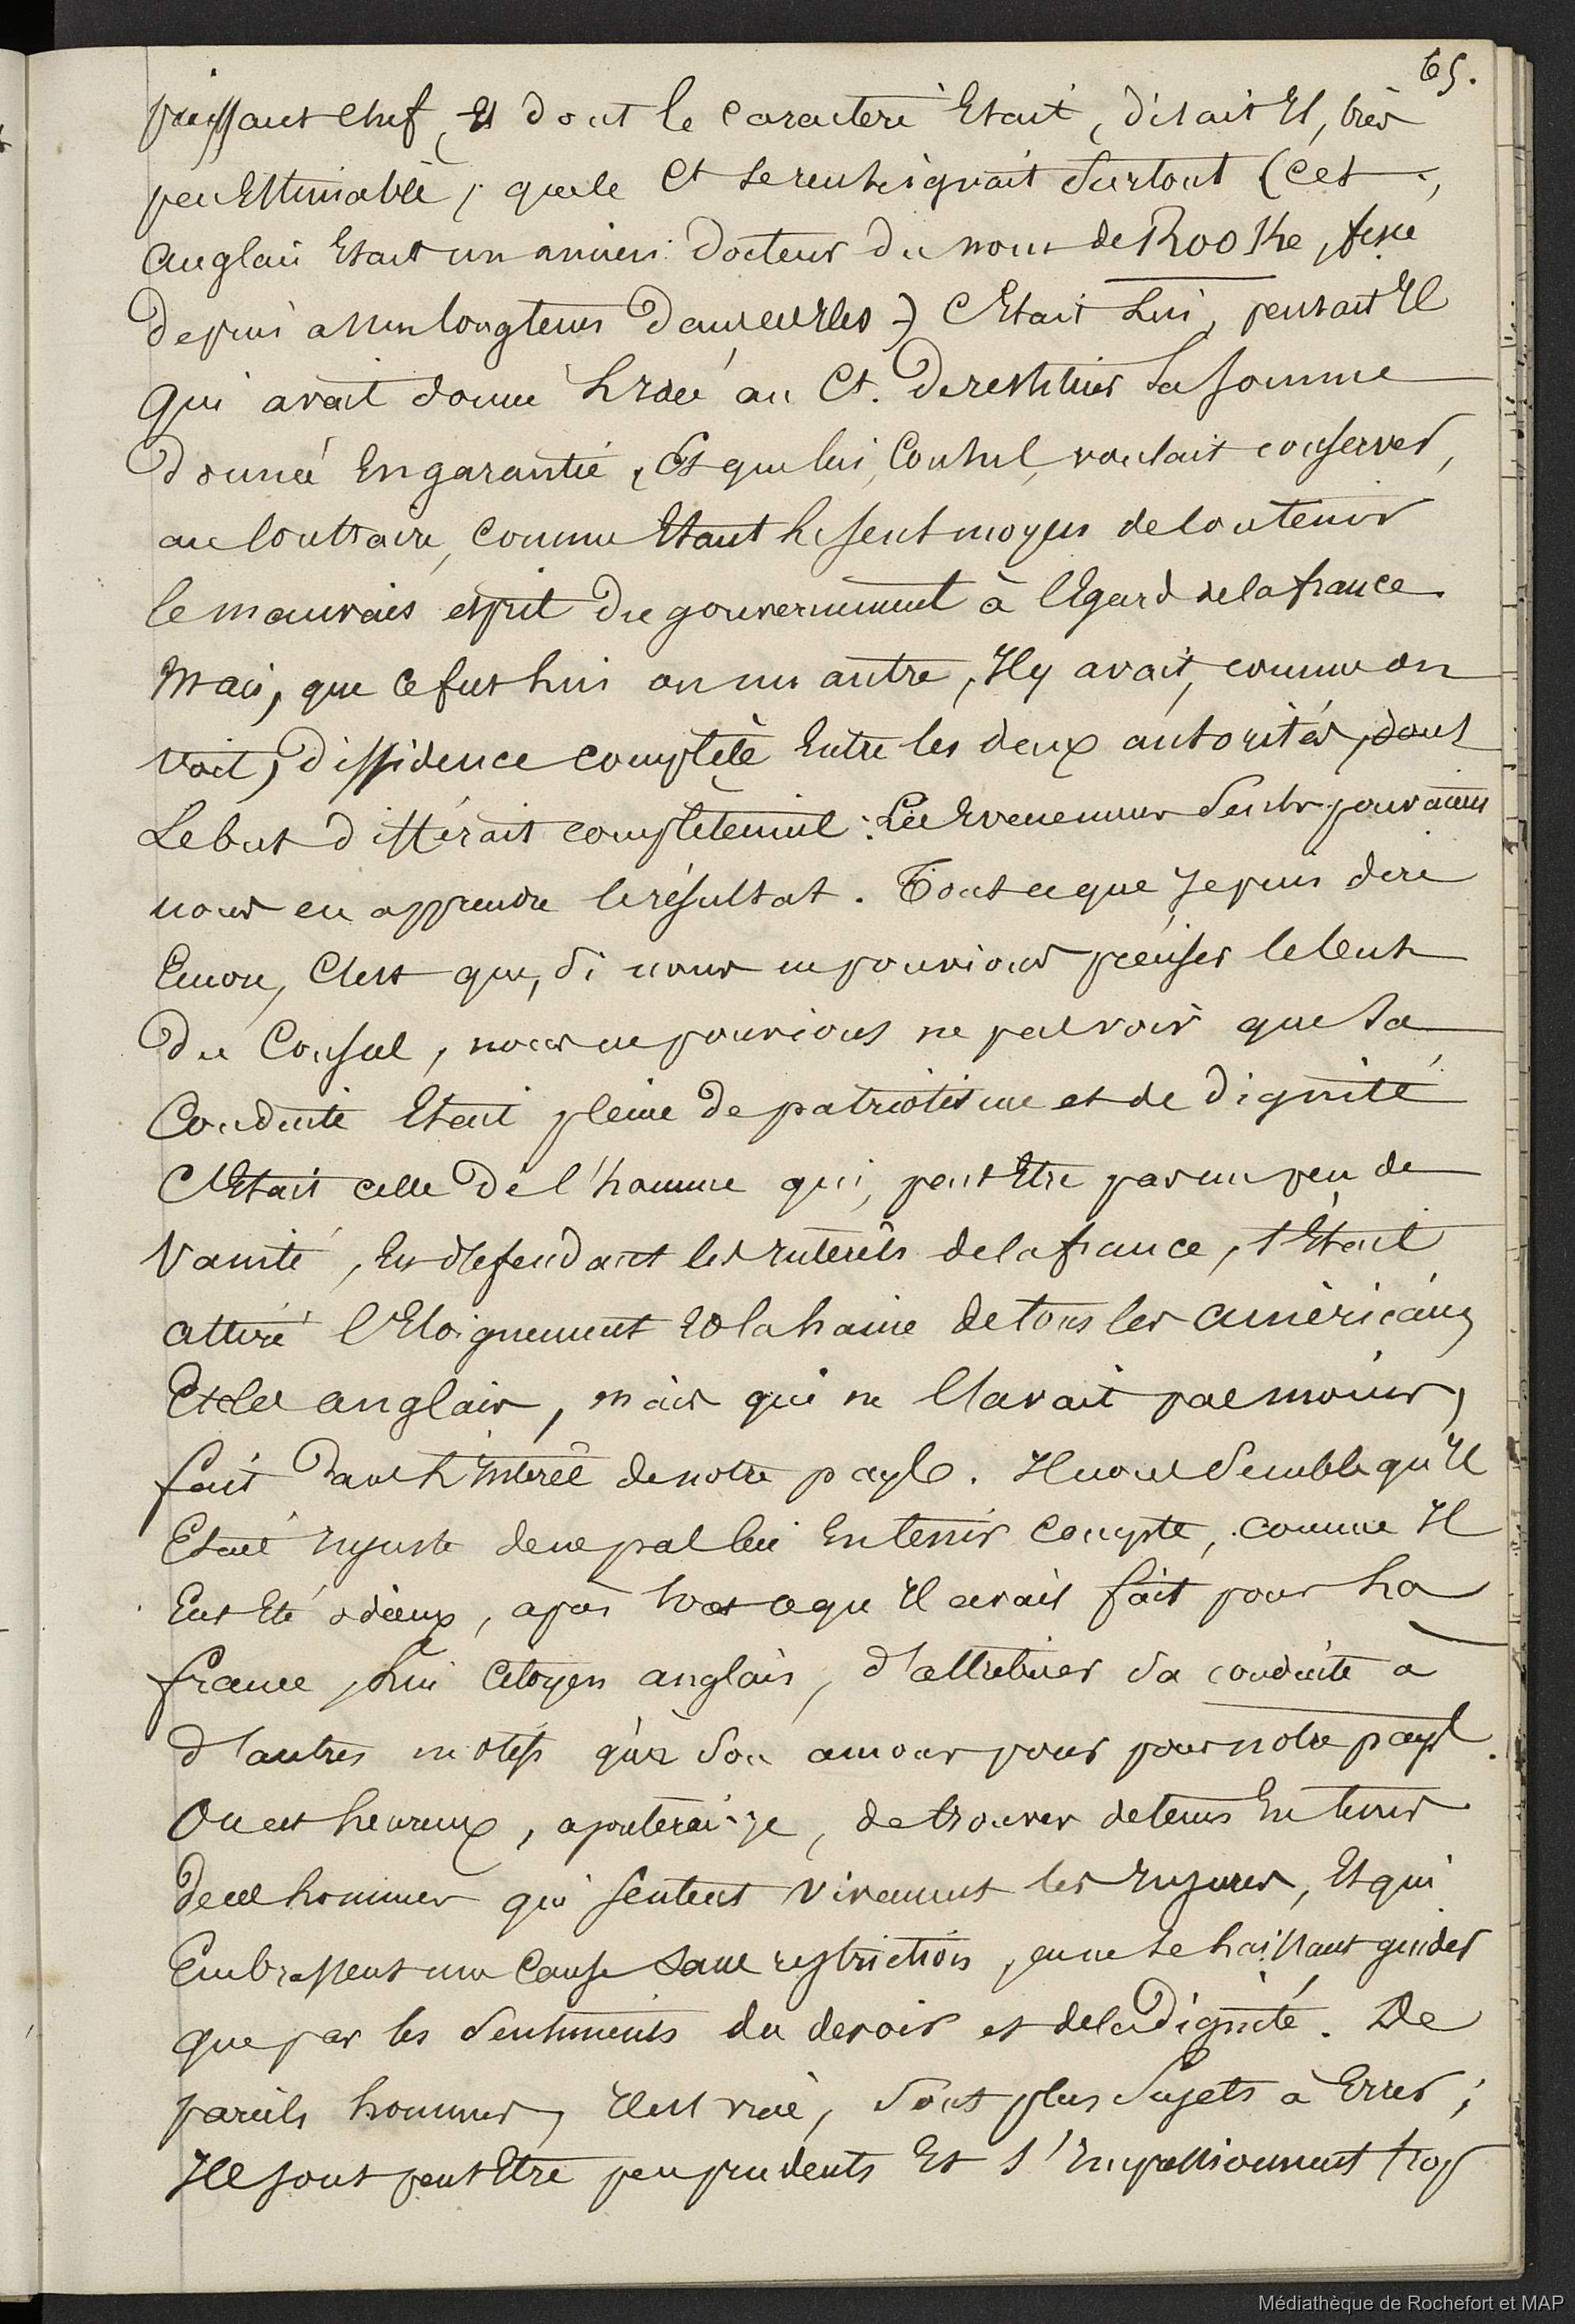 65.
puissant chef, Et dont le caractère Etait, disait Il, très
peu Estimable, que le Ct se renseignait Surtout (cet
anglais Etait un ancien Docteur du nom de Rooke, fixé
depuis assez longtems dans ces Iles) C'Etait Lui, pensait Il
qui avait donné l'Idée au Ct. de restituer la Somme
donnée En garantie, Et que lui, Consul, voulait conserver,
au Contraire, comme Etant le seul moyen de soutenir
le mauvais esprit du gouvernement à l'Egard de la france.
Mais, que ce fut lui ou un autre, Il y avait, comme on
voit, dissidence complète Entre les deux autorités, dont
Le but différait complètement. Les Evenemens Seuls pouvaient
nous en apprendre le résultat. Tout ce que Je puis dire
Encore, C'est que, Si nous ne pouvions préciser le but
Du Consul, nous ne pouvions ne pas voir que Sa
Conduite Etait pleine de patriotisme et de dignité
C'Etait celle de l'homme qui, peut Etre par un peu de
Vanité, En défendant les Intérêts de la france, s'Etait
attiré l'Eloignement Et la haine de tous les américains
Et des anglais, mais qui ne l'avait pas moins,
fait Dans l'Intérêt de notre pays. Il nous Semble qu'Il
Etait Injuste de ne pas lui En tenir Compte, comme Il
Eut Eté odieux, après tout ce qu'Il avait fait pour La
france, Lui Citoyen anglais, d'attribuer Sa conduite à
d'autres motifs qu'à Son amour pour pour notre pays.
On est heureux, ajouterai-je, de trouver de tems En tems
des hommes qui Sentent vivement les Injures, Et qui
Embrassent une Cause Sans restriction, en ne se laissant guider
que par les Sentiments du devoir et de la Dignité. De
pareils hommes, Il est vrai, Sont plus Sujets à Errer;
Ils sont peut Etre peu prudents Et s'Impassionnent trop
Médiathèque de Rochefort et MAP